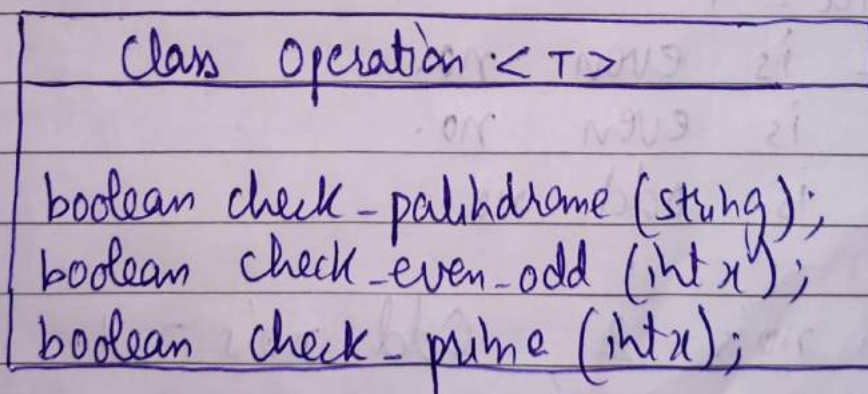 Class Operation <T>
boolean check_palindrome (string);
boolean check_even_odd (int x);
boolean check_prime (int x);